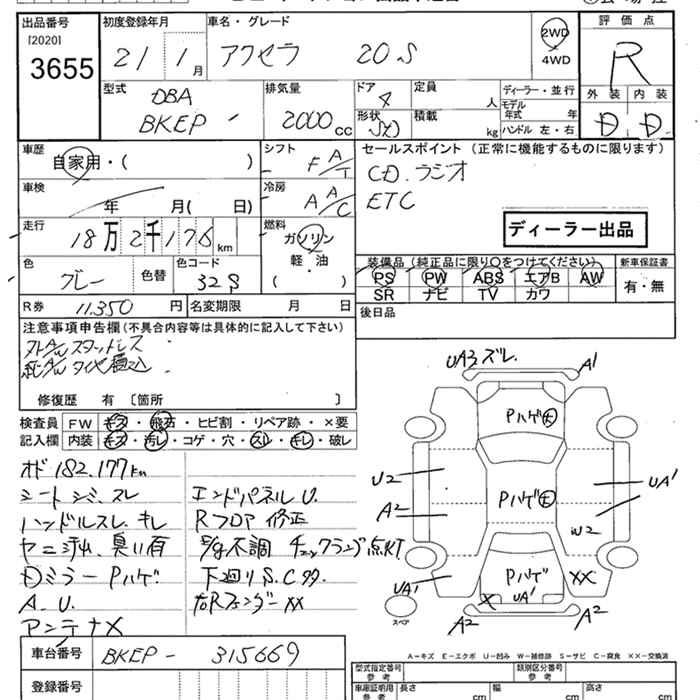 出品番号
[2020]
3655
初度登録年月
21 1月
車名・グレード
アクセラ 20S
2WD
4WD
評価点
R
外装 内装
D D
型式
DBA
BKEP
排気量
2000cc
ドア
4
形状
定員
人
積載
kg
ディーラー・並行
モデル年式 年
ハンドル 左・右
車歴
自家用・( )
シフト
F A/T
セールスポイント (正常に機能するものに限ります)
CD. ラジオ
ETC
ディーラー出品
車検
年 月( 日)
冷房
A A/C
走行
18万2千176km
燃料
ガソリン
軽・油
( ・ )
装備品(純正品に限り○をつけてください)
PS PW ABS エアB AW
SR ナビ TV カワ
新車保証書
有・無
色
グレー
色替
色コード
32S
後日品
R券 11,350円
名変期限 月 日
注意事項申告欄(不具合内容等は具体的に記入して下さい)
外A/W スタッドレス
純A/W タイヤ積込
修復歴 有 〔箇所 〕
検査員 FW キズ・飛石・ヒビ割・リペア跡・×要
記入欄 内装 キズ・汚レ・コゲ・穴・スレ・キレ・破レ
オド 182.177km
シート シミ、スレ
ハンドルスレ、キレ
ヤニ汚レ、臭い有
Dミラー Pハゲ
A. U.
アンテナX
エンドパネル U.
Rフロア 修正
E/g不調 チェックランプ点灯
下廻り S.C 多.
右Rフェンダー XX
UA3 ズレ.
A1
Pハゲ大
U2
A2
Pハゲ大
UA1
W2
Pハゲ
UA1
UA1
X
XX
スペア
A2
A2
A－キズ E－エクボ U－凹み W－補修跡 S－サビ C－腐食 XX－交換済
車台番号 BKEP - 315669
登録番号
型式指定番号
参考
類別区分番号
参考
車庫証明用
参考
長さ cm
幅 cm
高さ cm